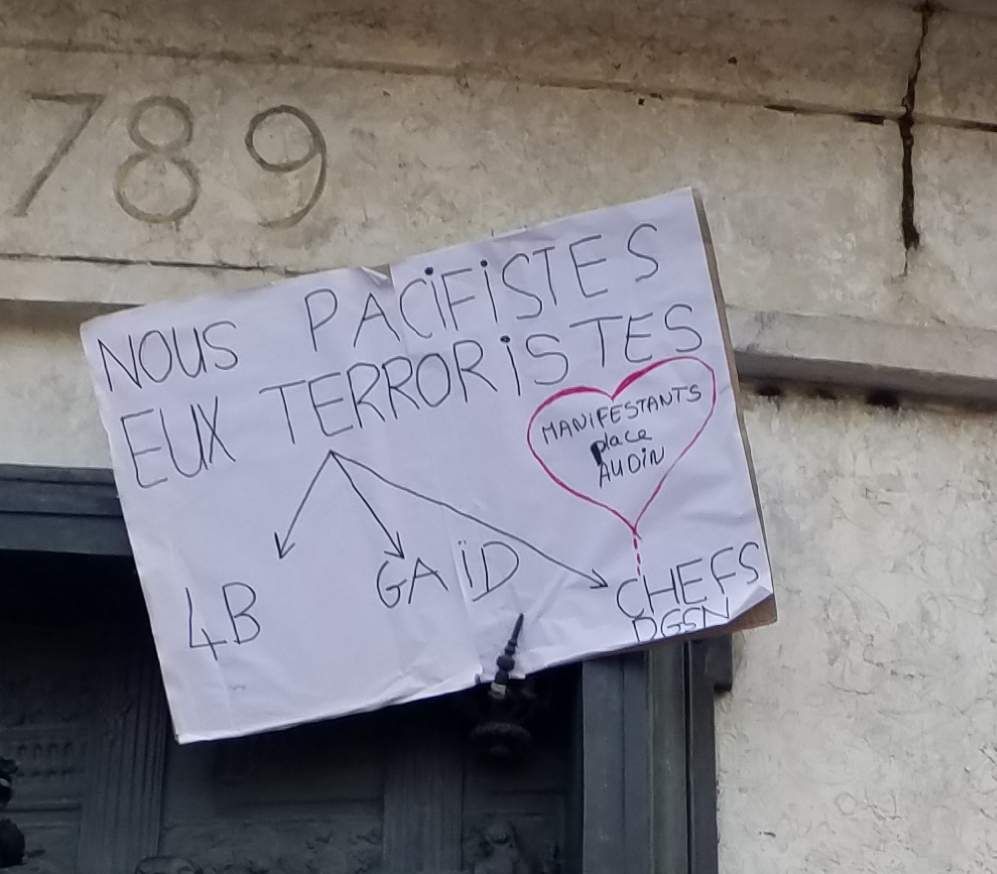 789
NOUS PACIFISTES
EUX TERRORISTES
MANIFESTANTS
place
AUDIN
4B
GAÏD
CHEFS
DGSN